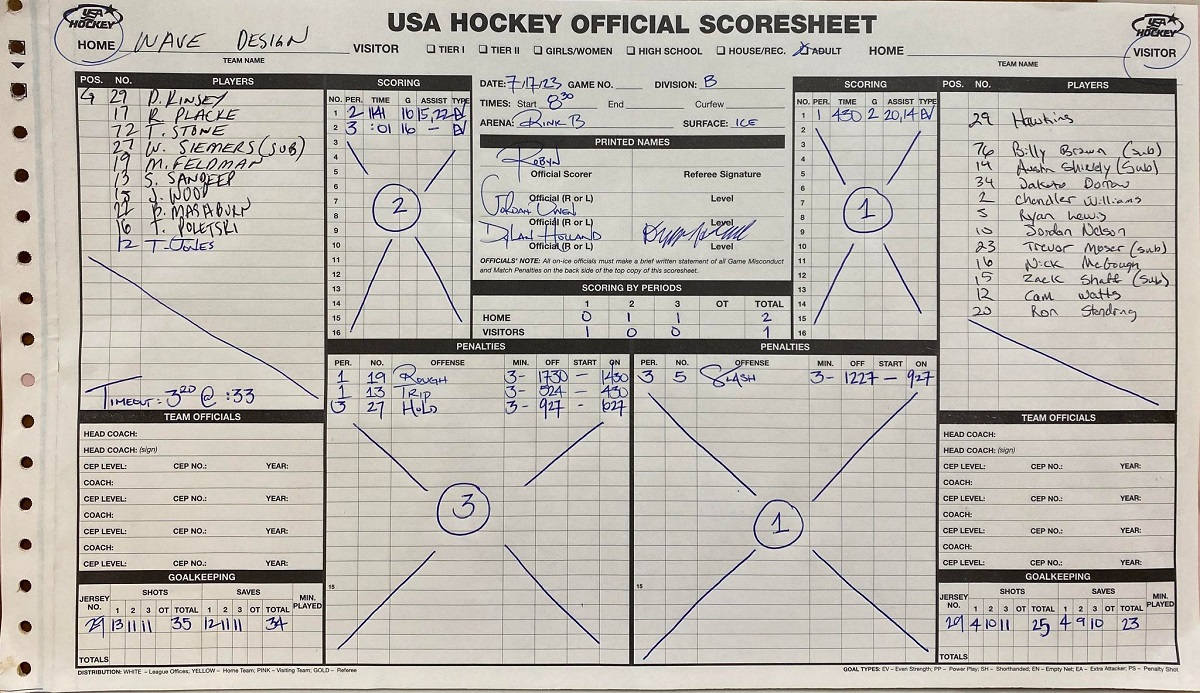 USA HOCKEY OFFICIAL SCORESHEET
USA HOCKEY
HOME WAVE DESIGN VISITOR
TEAM NAME
☐ TIER I ☐ TIER II ☐ GIRLS/WOMEN ☐ HIGH SCHOOL ☐ HOUSE/REC. ☒ ADULT
HOME VISITOR
TEAM NAME
USA HOCKEY
POS. NO. PLAYERS
G 29 D. KINSEY
17 R. PLACKE
72 T. STONE
27 W. SIEMERS (SUB)
19 M. FELDMAN
13 S. SANDEEP
15 J. WOOD
22 B. MASHBURN
16 T. POLETSKI
12 T. JONES
TIMEOUT: 3RD @ :33
SCORING
NO. PER. TIME G ASSIST TYPE
1 2 1141 16 15,22 EV
2 3 :01 16 — EV
3
4
5
6
7
8
9
10
11
12
13
14
15
16
2
DATE: 7/17/23 GAME NO. DIVISION: B
TIMES: Start 8:30 End Curfew
ARENA: RINK B SURFACE: ICE
PRINTED NAMES
ROBYN
Official Scorer Referee Signature
Official (R or L) Level
JORDAN OWEN
Official (R or L) Level
DYLAN HOLLAND
Official (R or L) Level
OFFICIALS' NOTE: All on-ice officials must make a brief written statement of all Game Misconduct
and Match Penalties on the back side of the top copy of this scoresheet.
SCORING BY PERIODS
1 2 3 OT TOTAL
HOME 0 1 1 2
VISITORS 1 0 0 1
SCORING
NO. PER. TIME G ASSIST TYPE
1 1 430 2 20,14 EV
2
3
4
5
6
7
8
9
10
11
12
13
14
15
16
1
POS. NO. PLAYERS
29 Hawkins
76 Billy Brown (sub)
14 Austin Shieldy (sub)
34 Dakota Dorrow
2 Chandler Williams
5 Ryan Lewis
10 Jordan Nelson
23 Trevor Moser (sub)
16 Nick McGough
15 Zack Shaff (sub)
12 Cam Watts
20 Ron Standring
PENALTIES
PER. NO. OFFENSE MIN. OFF START ON
1 19 ROUGH 3- 1730 — 1430
1 13 TRIP 3- 524 — 430
3 27 HOLD 3- 927 — 627
3
15
PENALTIES
PER. NO. OFFENSE MIN. OFF START ON
3 5 SLASH 3- 1227 — 927
1
15
TEAM OFFICIALS
HEAD COACH:
HEAD COACH: (sign)
CEP LEVEL: CEP NO.: YEAR:
COACH:
CEP LEVEL: CEP NO.: YEAR:
COACH:
CEP LEVEL: CEP NO.: YEAR:
COACH:
CEP LEVEL: CEP NO.: YEAR:
GOALKEEPING
SHOTS SAVES
JERSEY NO. 1 2 3 OT TOTAL 1 2 3 OT TOTAL MIN. PLAYED
29 13 11 11 35 12 11 11 34
TOTALS
TEAM OFFICIALS
HEAD COACH:
HEAD COACH: (sign)
CEP LEVEL: CEP NO.: YEAR:
COACH:
CEP LEVEL: CEP NO.: YEAR:
COACH:
CEP LEVEL: CEP NO.: YEAR:
COACH:
CEP LEVEL: CEP NO.: YEAR:
GOALKEEPING
SHOTS SAVES
JERSEY NO. 1 2 3 OT TOTAL 1 2 3 OT TOTAL MIN. PLAYED
29 4 10 11 25 4 9 10 23
TOTALS
DISTRIBUTION: WHITE – League Offices; YELLOW – Home Team; PINK – Visiting Team; GOLD – Referee
GOAL TYPES: EV – Even Strength; PP – Power Play; SH – Shorthanded; EN – Empty Net; EA – Extra Attacker; PS – Penalty Shot